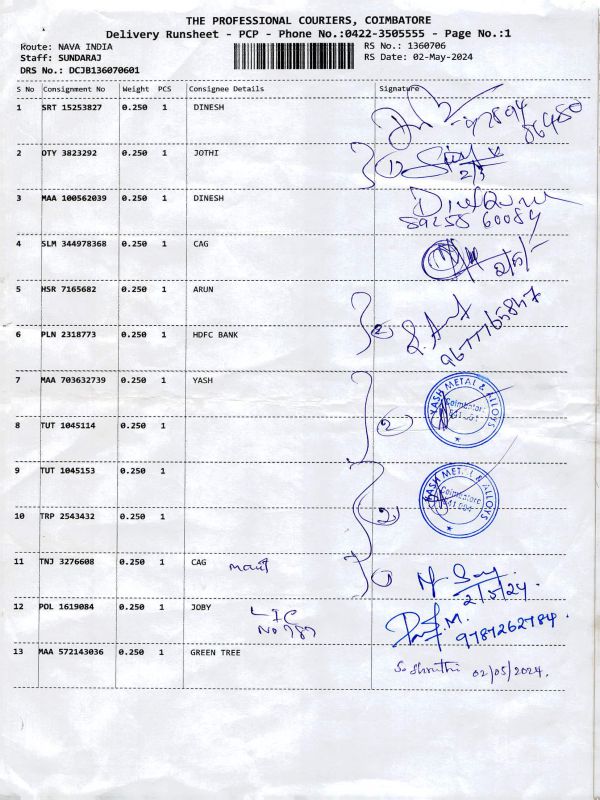 THE PROFESSIONAL COURIERS, COIMBATORE
Delivery Runsheet - PCP - Phone No.:0422-3505555 - Page No.:1
Route: NAVA INDIA
RS No.: 1360706
Staff: SUNDARAJ
RS Date: 02-May-2024
DRS No.: DCJB136070601
S No Consignment No Weight PCS Consignee Details Signature
1 SRT 15253827 0.250 1 DINESH
2 OTY 3823292 0.250 1 JOTHI
3 MAA 100562039 0.250 1 DINESH
89258 60084
4 SLM 344978368 0.250 1 CAG
5 HSR 7165682 0.250 1 ARUN
6 PLN 2318773 0.250 1 HDFC BANK 2
7 MAA 703632739 0.250 1 YASH
YASH METAL & ALLOYS
Coimbatore
8 TUT 1045114 0.250 1 2
9 TUT 1045153 0.250 1
YASH METAL & ALLOYS
Coimbatore
10 TRP 2543432 0.250 1 2
11 TNJ 3276608 0.250 1 CAG 1
2/5/24.
12 POL 1619084 0.250 1 JOBY LIC
No 789
9787262784.
13 MAA 572143036 0.250 1 GREEN TREE
S. Shruthi 02/05/2024.